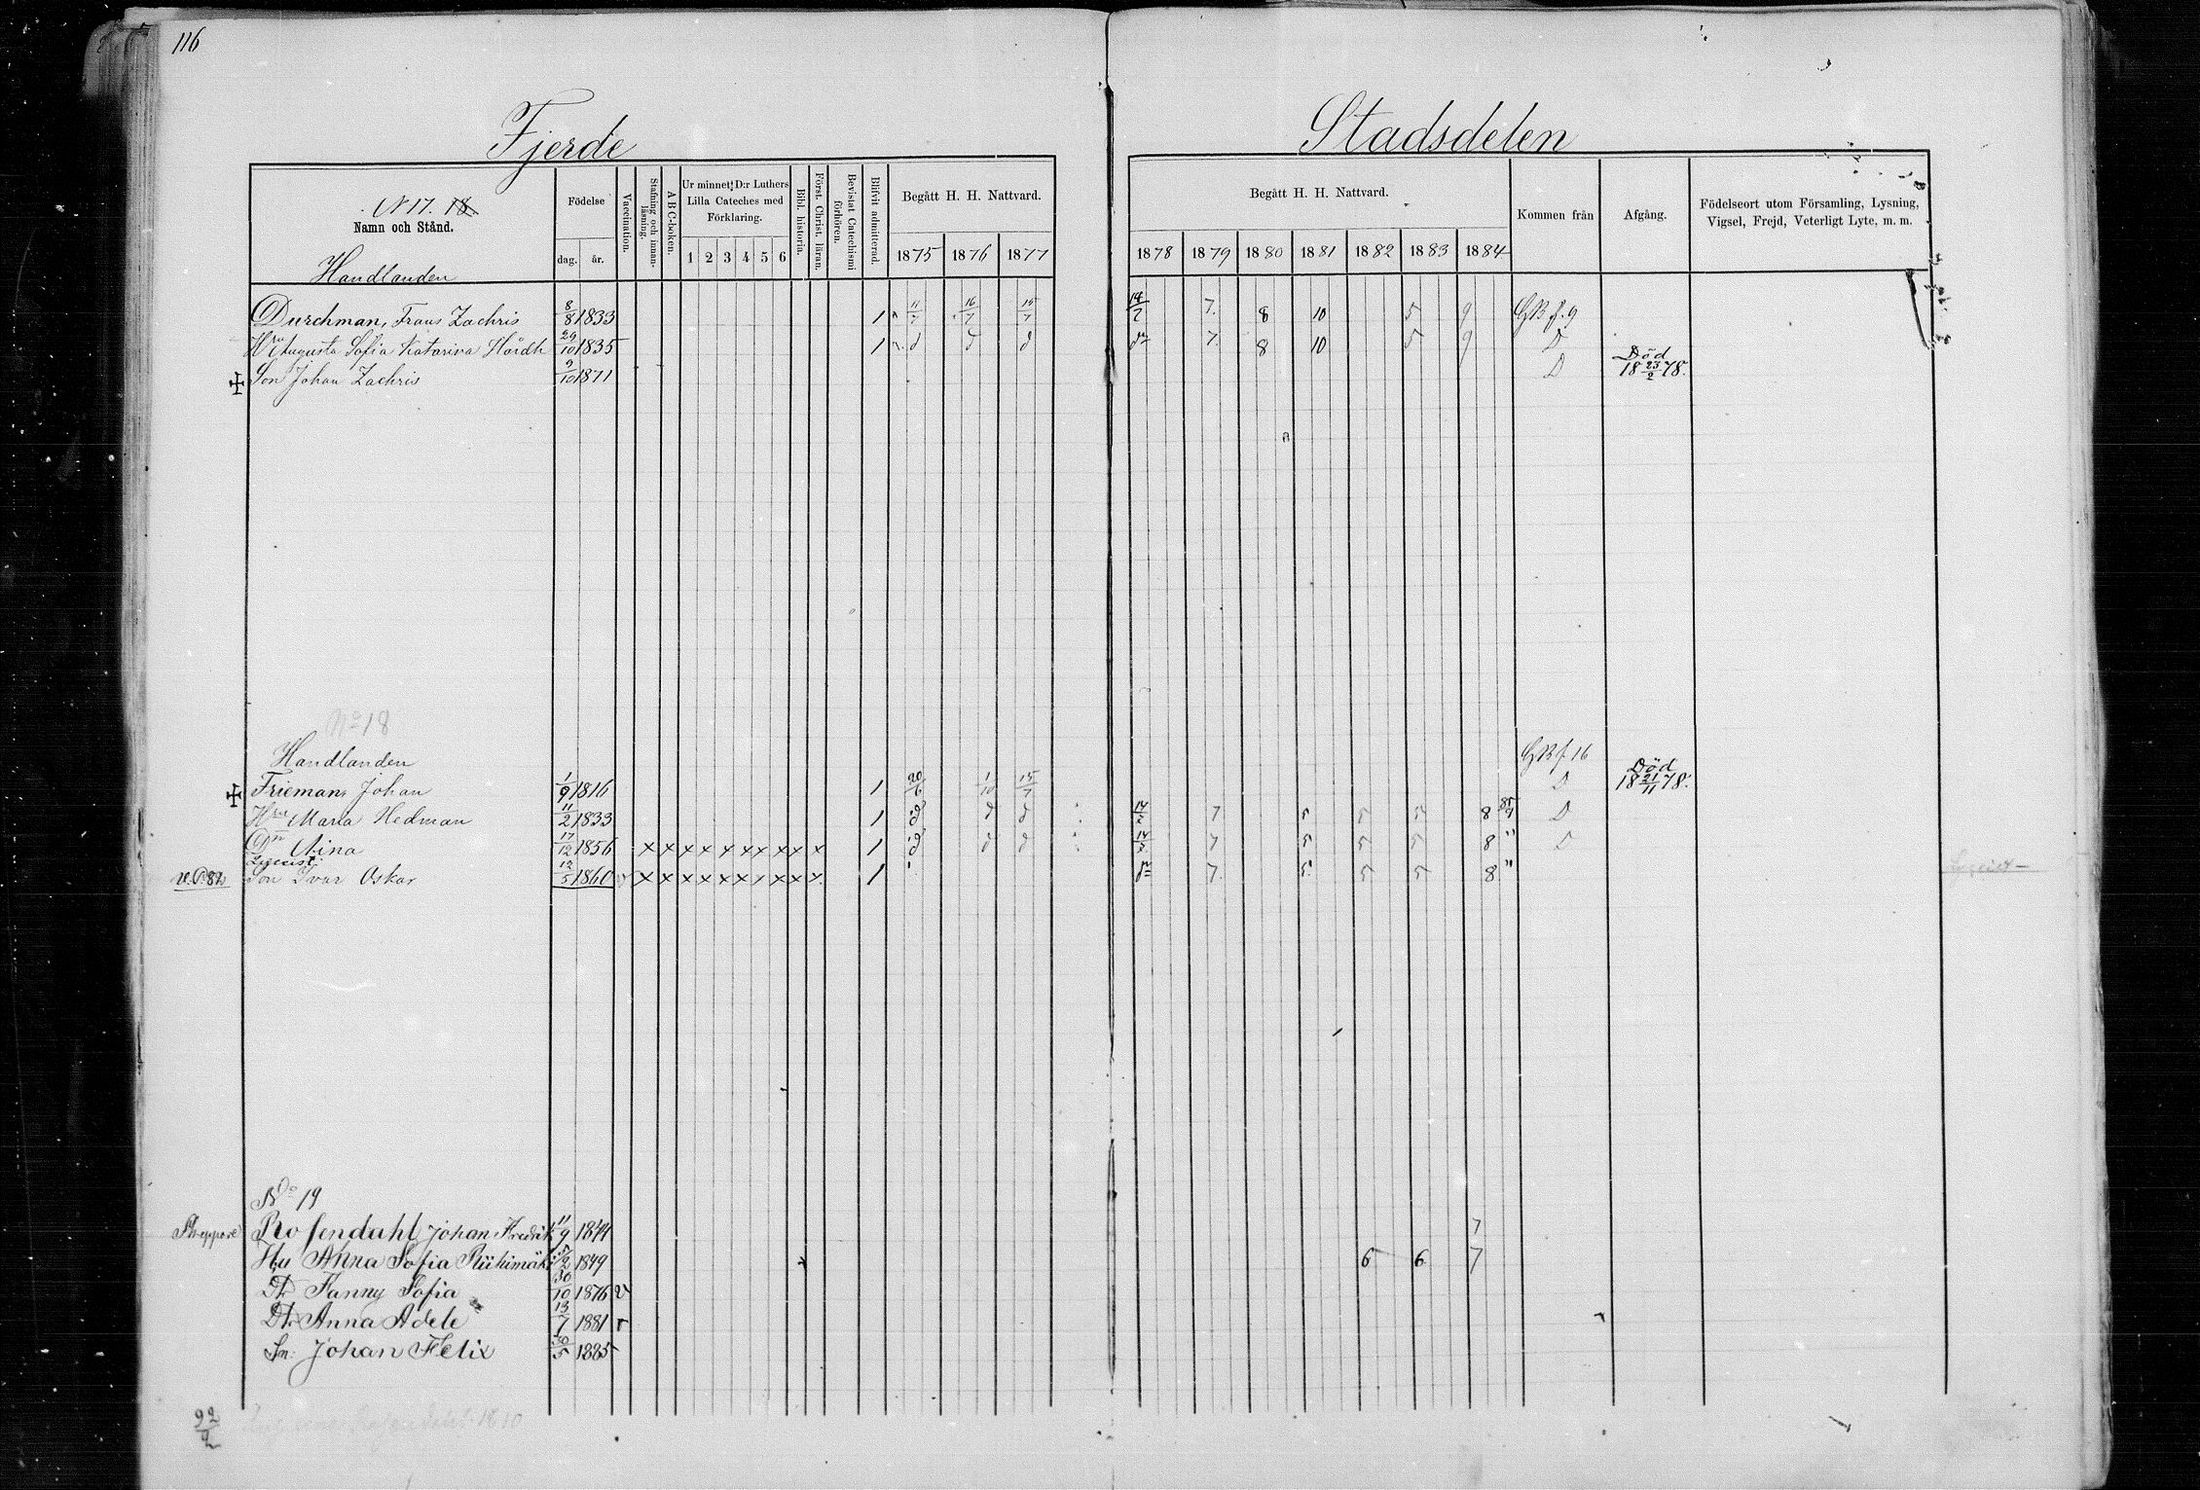 116
Fjerde Stadsdelen
N 17. 18.
Namn och Stånd.
Födelse
dag. år.
Vaccination.
Stafning och innanläsning.
A B C-boken.
Ur minnet D:r Luthers Lilla Cateches med Förklaring.
1 2 3 4 5 6
Bibl. historia.
Först. Christ. läran.
Bevistat Catechismi förhören.
Blifvit admitterad.
Begått H. H. Nattvard.
1875 1876 1877
Begått H. H. Nattvard.
1878 1879 1880 1881 1882 1883 1884
Kommen från
Afgång.
Födelseort utom Församling, Lysning, Vigsel, Frejd, Veterligt Lyte, m. m.
Handlanden
Durchman, Frans Zachris 8/8 1833 1 11/7 16/7 15/7 14/7 7. 8 10 5 9 GB f. 9
Hru Augusta Sofia Katarina Hördh 29/10 1835 1 d d d 7. 8 10 5 9 D
Son Johan Zachris 9/10 1871 D Död 18 23/2 78.
No 18
Handlanden GB f 16
Frieman, Johan 1/9 1816 1 20/6 1/10 15/7 D Död 18 21/11 78.
Hru Maria Hedman 11/2 1833 1 d d d 7 5 5 5 8 D
Dr Aina 17/12 1856 x x x x x x x x x x 1 d d d 7 5 5 5 8 " D
Son Ivar Oskar 12/5 1860 x x x x x x x x x x 1 7. 5 5 5 8 "
No 19
Rosendahl Johan Fredrik 11/9 1844 7
Hu Anna Sofia Riihimäki 1849 6 6 7
Dr. Fanny Sofia 30/10 1876 v
Dr. Anna Adele 13/7 1881 v
Sn. Johan Felix 30/5 1885